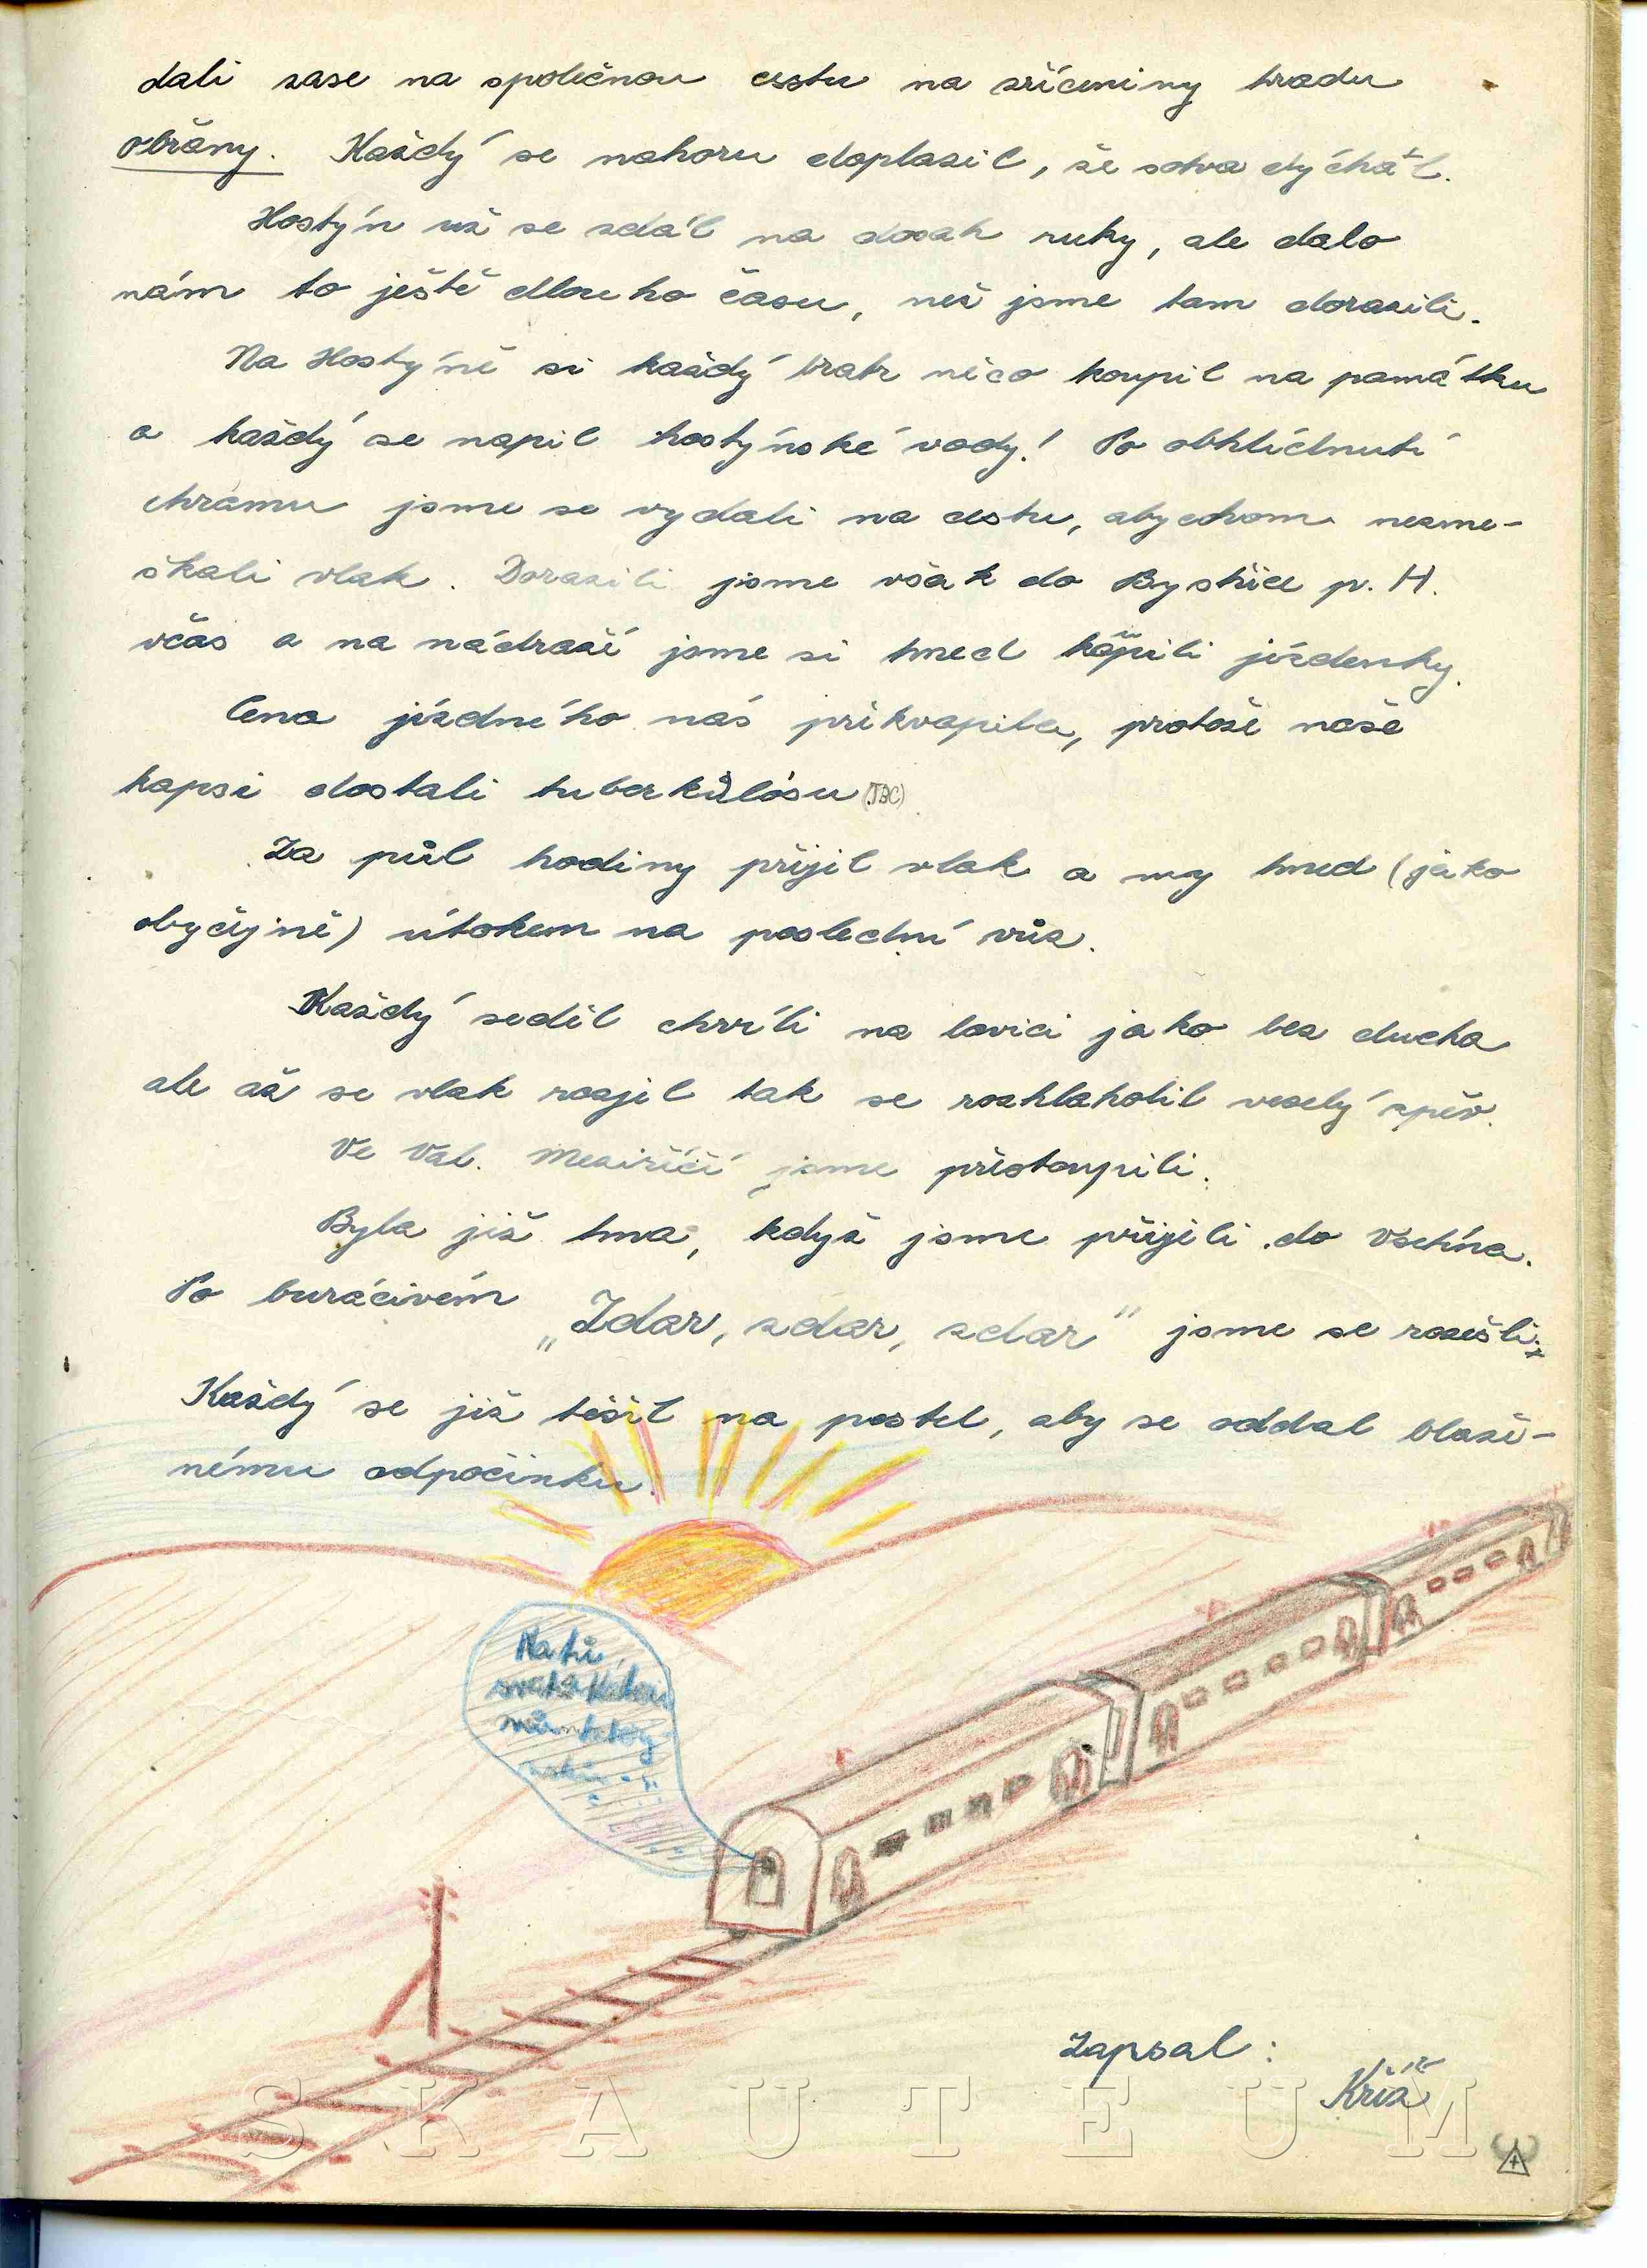 dali zase na společnou cestu na zříceniny hradu
obřany. Každý se nahoru doplazil, že sotva dýchal.
Hostýn už se zdál na dosah ruky, ale dalo
nám to ještě dlouho času, než jsme tam dorazili.
Na Hostýně si každý bratr něco koupil na památku
a každý se napil hostýnské vody! Po obhlídnutí
chrámu jsme se vydali na cestu, abychom nezme-
škali vlak. Dorazili jsme však do Bystřice p. H.
včas a na nádraží jsme si hned kůpili jízdenky.
Cena jízdného nás překvapila, protože naše
kapsi dostali tuberkůlósu (TBC)
Za půl hodiny přijel vlak a my hned (jako
obyčejně) útokem na poslední vůz.
Každý seděl chvíli na lavici jako bez ducha
ale až se vlak rozjel tak se rozhlaholil veselý zpěv.
Ve Val. Meziříčí jsme přestoupili.
Byla již tma, když jsme přijeli do Vsetína.
Po burácivém „Zdar, zdar, zdar" jsme se rozešli.
Každý se již těšil na postel, aby se oddal blaže-
nému odpočinku.
Zapsal:
Kříž
SKAUTEUM